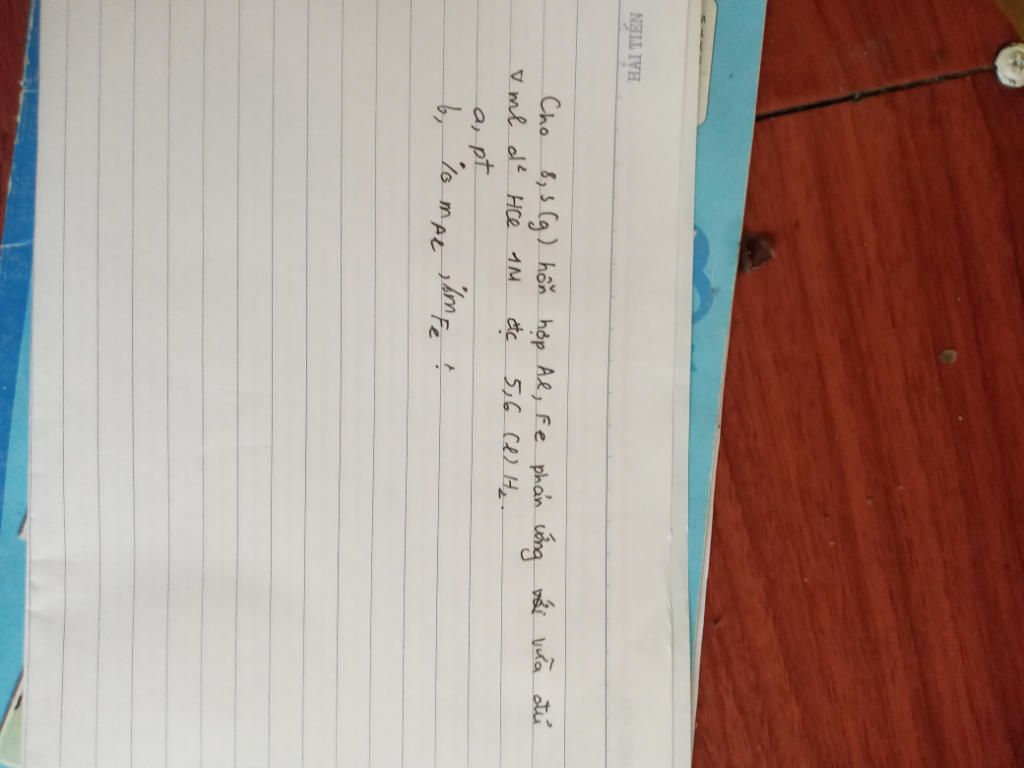 HẢI TIẾN
Cho 8,3(g) hỗn hợp Al, Fe phản ứng với vừa đủ
V ml d² HCl 1M đc 5,6 (l) H₂.
a, pt
b, % mAl, %mFe :